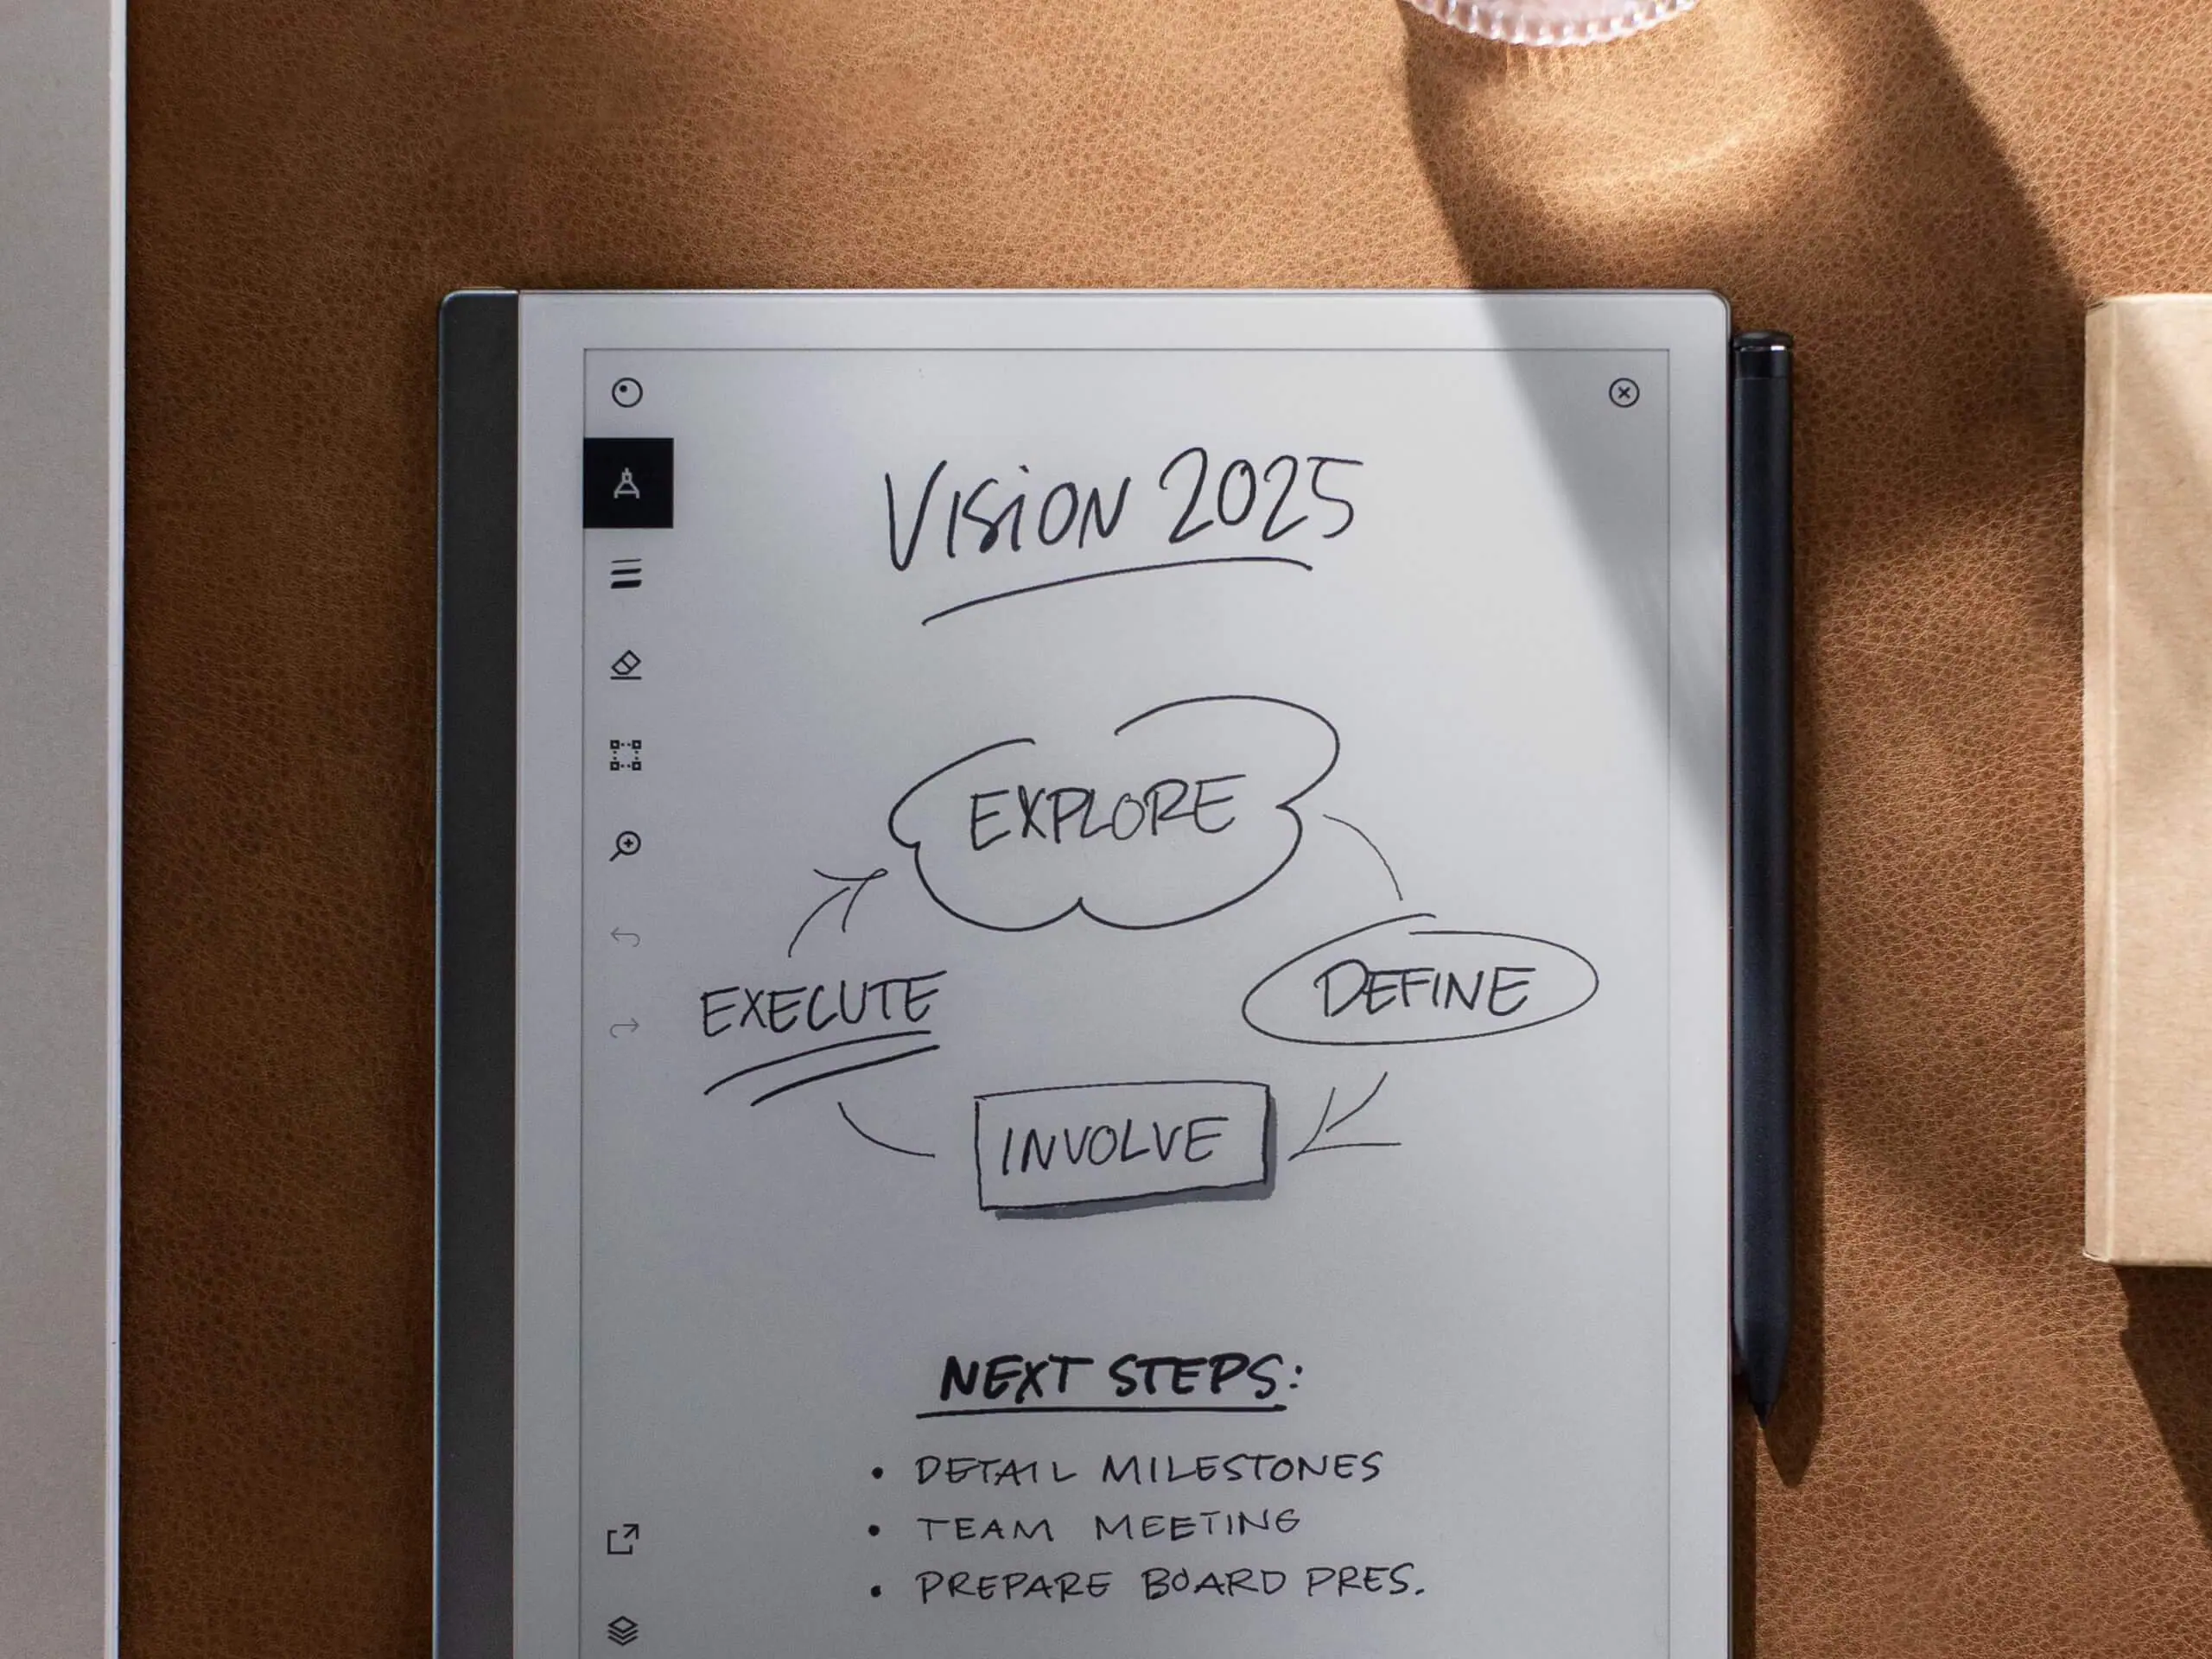 VISION 2025
EXPLORE
DEFINE
EXECUTE
INVOLVE
NEXT STEPS:
• DETAIL MILESTONES
• TEAM MEETING
• PREPARE BOARD PRES.